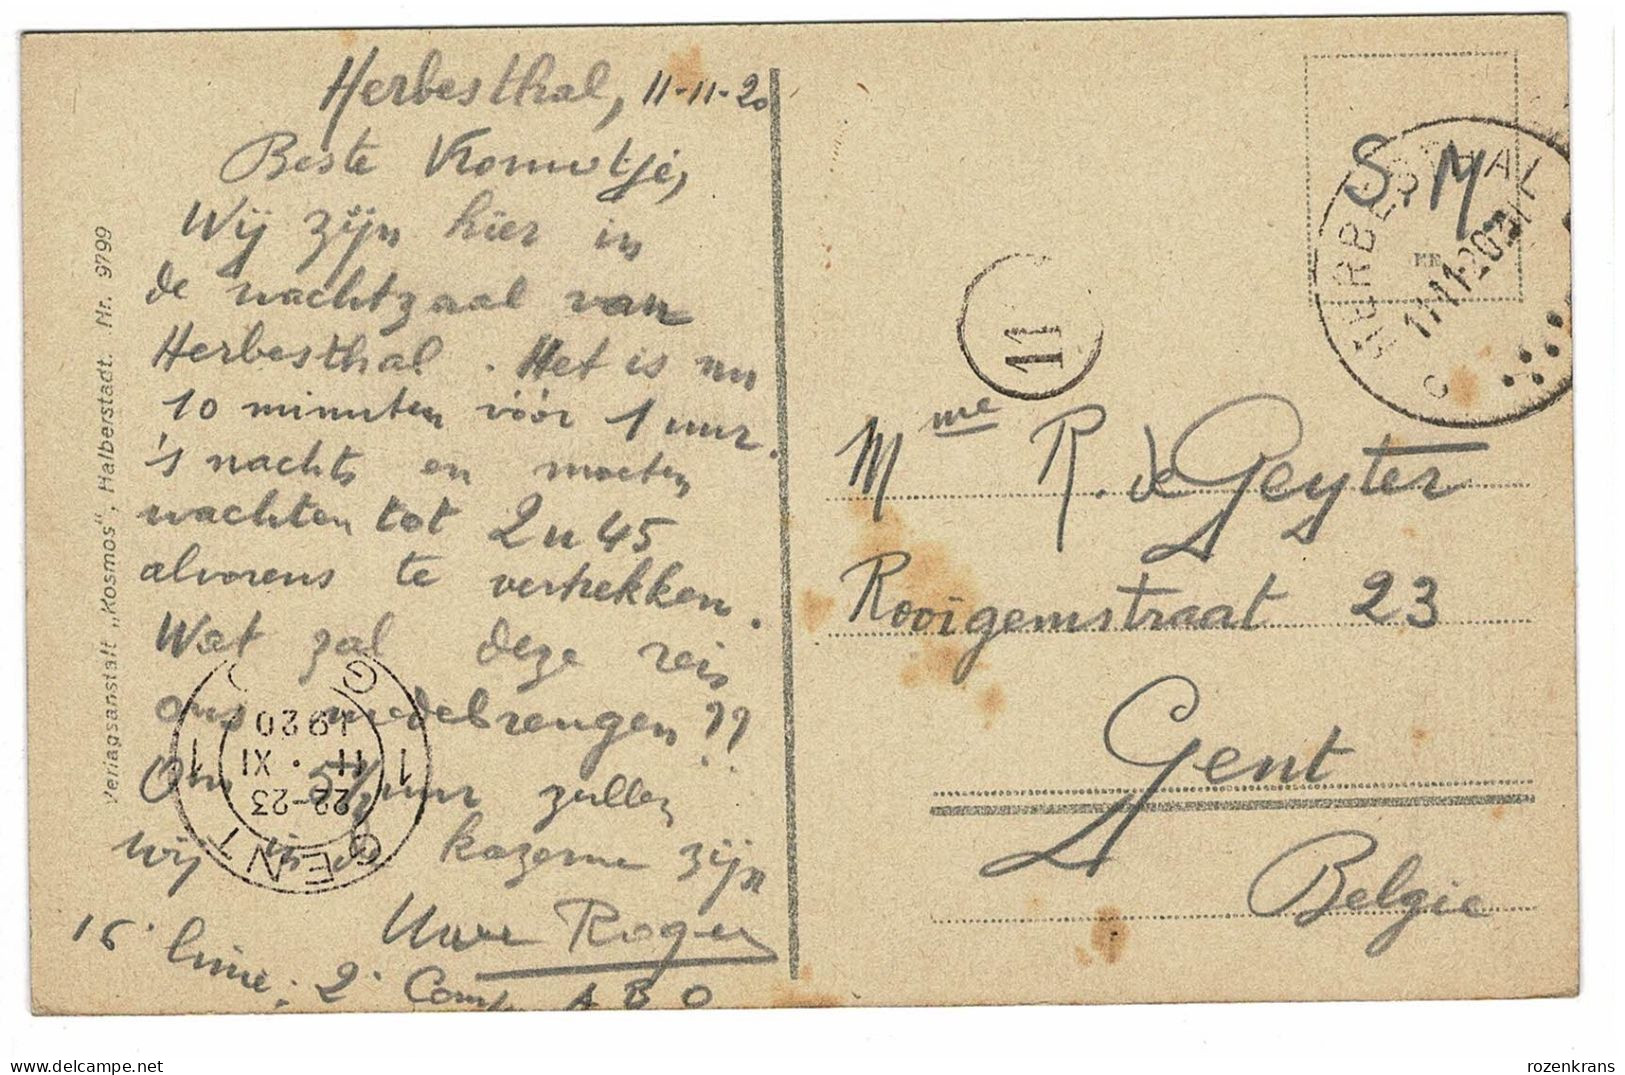 Herbesthal, 11-11-20
Beste Vrouwtje,
Wij zijn hier in
de wachtzaal van
Herbesthal. Het is nu
10 minuten vóór 1 uur
's nachts en moeten
wachten tot 2u45
alvorens te vertrekken.
Wat zal deze reis
ons medebrengen??
Om 5½ uur zullen
wij in de kazerne zijn
Uwe Roger
16e linie; 2e Comp A B O
Verlagsanstalt „Kosmos“, Halberstadt. Nr. 9799
GENT 1 1 G
22-23
11 . XI
1920
S.M
HERBESTHAL
11 11 20
C
11
Mme R. de Geyter
Rooigemstraat 23
Gent
Belgie
rozenkrans